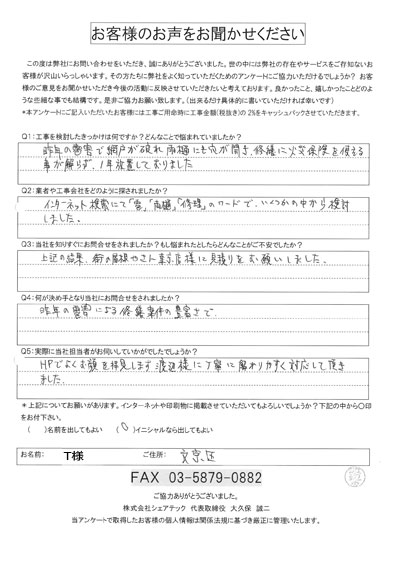 お客様のお声をお聞かせください
この度は弊社にお問い合わせをいただき、誠にありがとうございます。世の中には弊社の存在やサービスをご存知ないお
客様が沢山いらっしゃいます。その方たちに弊社をよく知っていただくためのアンケートにご協力いただけるでしょうか？ お客
様のご意見をお聞かせいただき今後の活動に反映させていただきたいと考えております。良かったこと、嬉しかったことどのよ
うな些細な事でも結構です。是非ご協力お願い致します。（出来るだけ具体的に書いていただければ幸いです）
*本アンケートにご記入いただいたお客様には工事ご用命時に工事金額(税抜き)の2%をキャッシュバックさせていただきます。
Q1：工事を検討したきっかけは何ですか？どんなことで悩まれていましたか？
昨年の雹害で網戸が破れ雨樋にも穴が開き、修繕に火災保険を使える
事が解らず、1年放置しておりました
Q2：業者や工事会社をどのように探されましたか？
インターネット検索にて「雹」「雨樋」「修理」のワードで、いくつかの中から検討
しました。
Q3：当社を知りすぐにお問合せをされましたか？もし悩まれたとしたらどんなことがご不安でしたか？
上記の結果、街の屋根やさん東京店様に見積りをお願いしました。
Q4：何が決め手となり当社にお問合せをされましたか？
昨年の雹害による修繕事例の豊富さで
Q5：実際に当社担当者がお伺いしていかがでしたでしょうか？
HPでよくお顔を拝見します渡辺様に丁寧に解わりやすく対応して頂き
ました.
*上記についてお願いがあります。インターネットや印刷物に掲載させていただいてもよろしいでしょうか？下記の中から○印
をお付下さい。
（　）名前を出してもよい （○）イニシャルなら出してもよい
お名前： T様 ご住所： 文京区
FAX 03-5879-0882
ご協力ありがとうございました。
株式会社シェアテック 代表取締役 大久保 誠二
当アンケートで取得したお客様の個人情報は関係法規に基づき厳正に管理いたします。